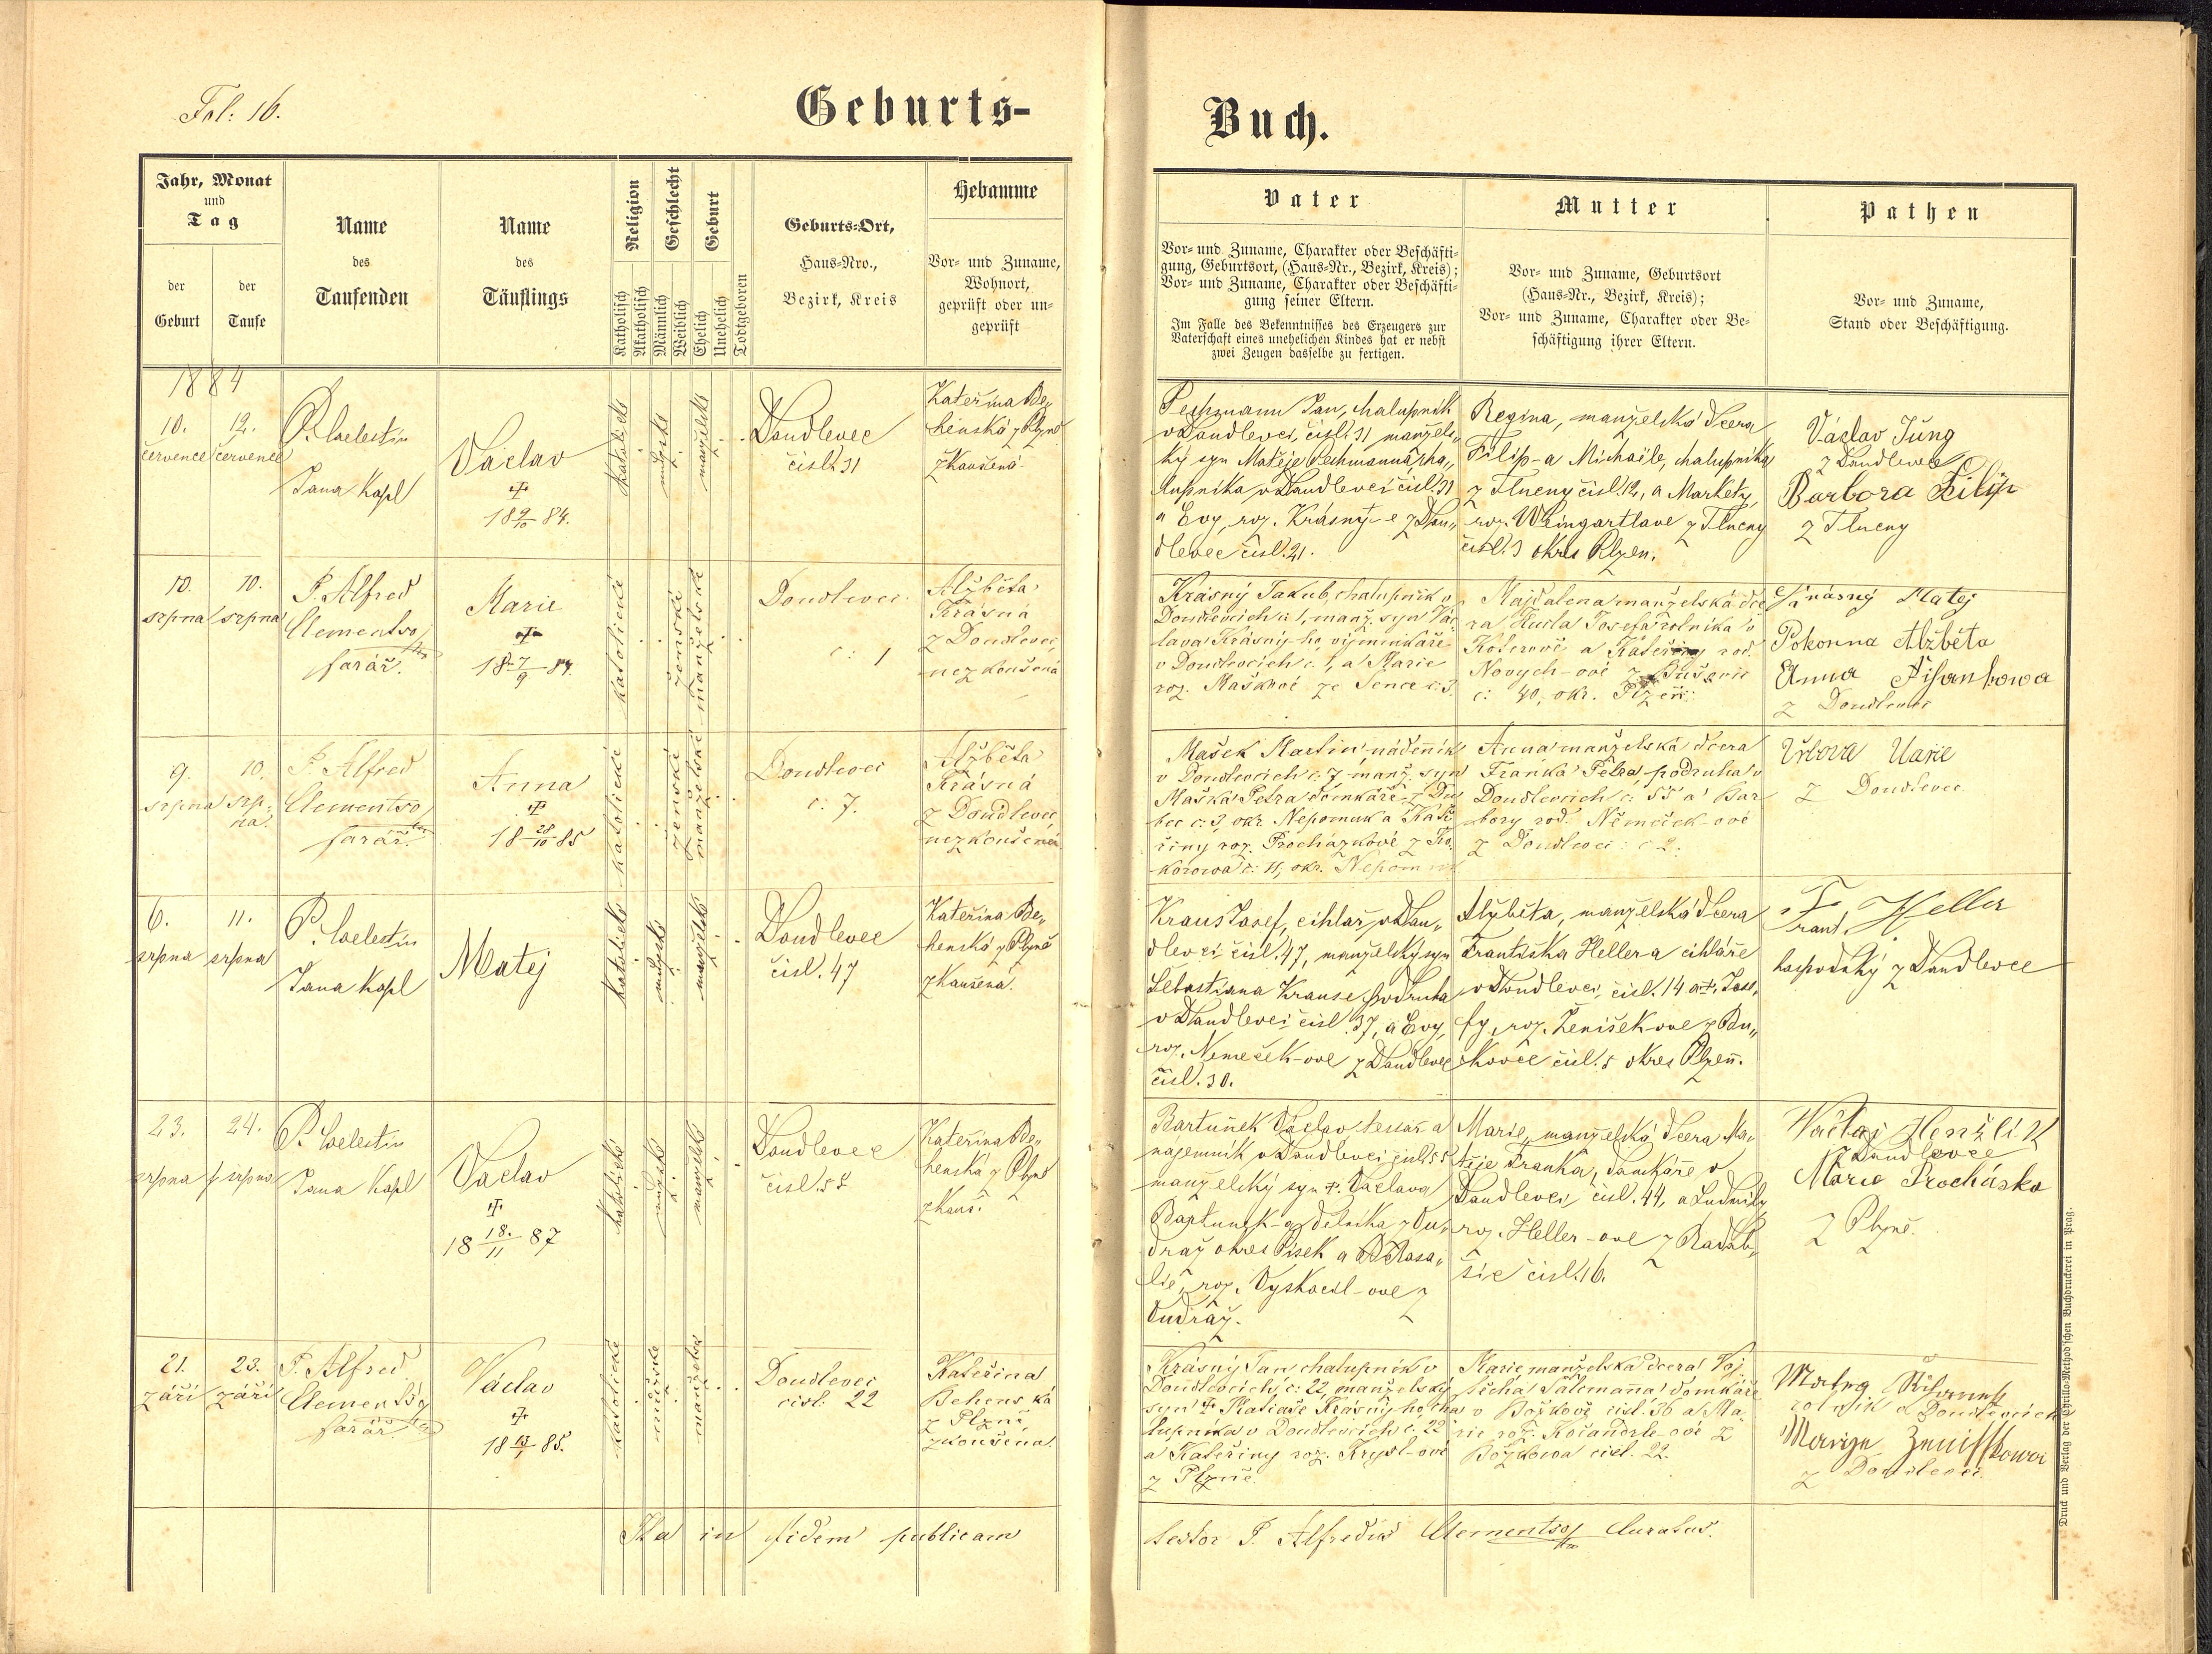 Fol: 16.
Geburts-
Buch.
Jahr, Monat
und
Tag
der
Geburt
der
Taufe
Name
des
Taufenden
Name
des
Täuflings
Religion
Katholisch
Akatholisch
Geschlecht
Männlich
Weiblich
Geburt
Ehelich
Unehelich
Todtgeboren
Geburts-Ort,
Haus-Nro.,
Bezirk, Kreis
Hebamme
Vor- und Zuname,
Wohnort,
geprüft oder un-
geprüft
Vater
Vor- und Zuname, Charakter oder Beschäfti-
gung, Geburtsort, (Haus-Nr., Bezirk, Kreis);
Vor- und Zuname, Charakter oder Beschäfti-
gung seiner Eltern.
Im Falle des Bekenntnisses des Erzeugers zur
Vaterschaft eines unehelichen Kindes hat er nebst
zwei Zeugen dasselbe zu fertigen.
Mutter
Vor- und Zuname, Geburtsort
(Haus-Nr., Bezirk, Kreis);
Vor- und Zuname, Charakter oder Be-
schäftigung ihrer Eltern.
Pathen
Vor- und Zuname,
Stand oder Beschäftigung.
1884
10.
července
12.
července
P. Coelestin
Jana Kapl
Václav
†
18 9/10 84.
katolické
mužské
manželské
Doudlevec
čisl. 31
Kateřina Be„
henská z Plzně
zkoušená
Pechmann Jan, chalupník
v Doudlevci, čisl. 31 manžels„
ký syn Matěje Pechmanna, cha„
lupníka v Doudlevci čisl. 31
a Evy, roz. Krásný-e z Dou„
dlevec čisl. 21.
Regina, manželská dcera
Filip-a Michaile, chalupníka
z Tlucny čisl. 12, a Markety,
roz. Weingartlove z Tlucny
čisl. 3 okres Plzen.
Václav Jung
z Doudlevec
Barbora Filip
z Tlucny
10.
srpna
10.
srpna
P. Alfred
Clementso
farář.
Marie
†
18 7/9 84.
katolické
ženské
manželské
Doudlevec
č: 1
Alžběta
Krásná
z Doudlevec,
nezkoušená
Krásný Jakub, chalupník v
Doudlevcích č: 1, manž. syn Vác
lava Krásný-ho, výminkáře
v Doudlevcích č. 1, a Marie
roz. Maškové ze Sence č: 3.
Majdalena manželská dce
ra Kurla Josefa rolníka v
Koterově a Kateřiny rod.
Novych-ové z Bušovic
č: 40, okr. Plzeň.
Krásný Matej
Pokorna Alžběta
Anna Pisankowa
z Doudlevec
9.
srpna
10.
srp-
na.
P. Alfred
Clementso
farář.
Anna
†
18 28/10 85
katolické
ženské
manželské
Doudlevec
č: 7.
Alžběta
Krásná
z Doudlevec,
nezkoušená
Mašek Martin nádeník
v Doudlevcích č: 7 manž. syn
Maška Petra domkáře z Du
bec č: 3, okr. Nepomuk a Kate
řiny roz. Procházkové z Ko
korowa č: 11, okr. Nepomuk
Anna manželská dcera
Franka Petra, podruha v
Doudlevcích č: 55 a Bar
bory rod. Němeček-ové
z Doudlevec č 2.
Urbova Marie
z Doudlevec
6.
srpna
11.
srpna
P. Coelestin
Jana Kapl
Matej
katolické
mužské
manželské
Doudlevec
čisl. 47
Kateřina Be„
henská z Plzně
zkoušená.
Kraus Josef, cihlář v Dou„
dlevci, čisl. 47, manželský syn
Sebastiana Krause podruha
v Doudlevci čisl. 37, a Evy,
roz. Nemeček-ove z Doudlevec
čisl. 30.
Alžběta, manželská dcera
Frantiska Heller-a cihláře
v Doudlevci, čisl. 14 a †. Jose„
fy, roz. Zenišek-ove z Bu„
kovce čisl. 5 okres Plzen.
Frant. Heller
hospodský z Doudlevce
23.
srpna
24.
srpna
P. Coelestin
Jana Kapl
Václav
†
18 18./11 87
katolické
mužské
manželské
Doudlevec
čisl. 55
Kateřina Be„
henská z Plzně
zkouš.
Bartunek Václav tessař a
nájemník v Doudlevci čisl. 55
manželský syn †. Václava
Bartunek-a dělníka z Ou„
draž okres Pisek a Rosa„
lie, roz. Vyskočil-ove z
Oudraž.
Marie, manželská dcera Ma„
těje Franka, domkáře v
Doudlevci, čisl. 44, a Ludmily
roz. Heller-ove z Radob„
šic čisl. 16.
Václav Henžlik
z Doudlevce
Marie Procháska
z Plzně.
21.
září
23.
září
P. Alfred
Clementso
farář
Václav
†
18 13/7 85.
katolické
mužské
manželské
Doudlevec
čisl: 22
Kateřina
Behenská
z Plzně
zkoušená.
Krásný Jan chalupník v
Doudlevcích č: 22, manželský
syn † Matiaše Krásný-ho, cha
lupníka v Doudlevcích č. 22
a Kateřiny roz. Krysl-ové
z Plzně.
Marie manželská dcera Voj
těcha Salzmanna domkáře
v Božkově čisl. 36 a Ma
rie roz. Kočandrle-ové z
Božkowa čisl. 22.
rolník v Doudlevcích
z Doudlevec
Ita in fidem publicam
testor P. Alfredus Clementso Curatus.
Druck und Verlag der Cyrillo-Method'schen Buchdruckerei in Prag.